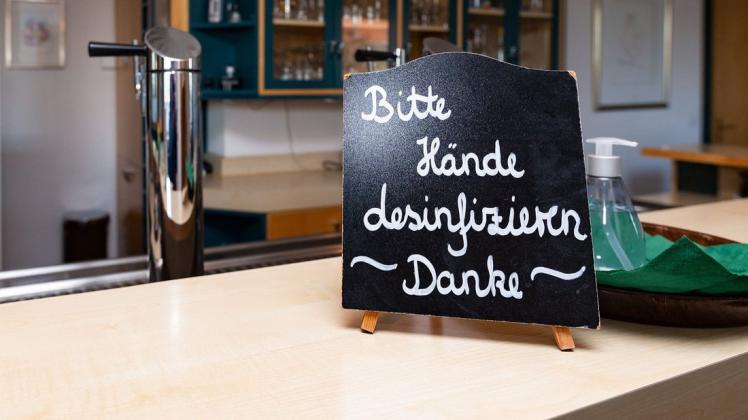 Bitte
Hände
desinfizieren
~ Danke ~